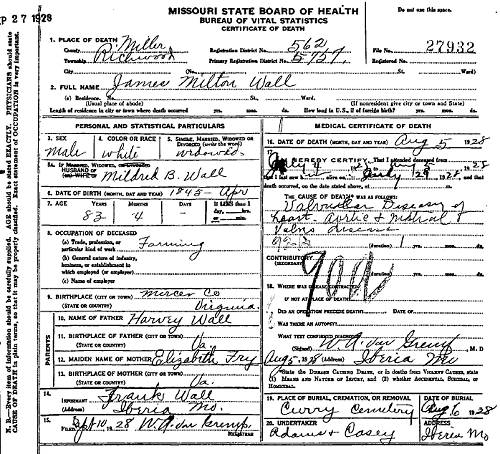 P 27 1928
MISSOURI STATE BOARD OF HEALTH
BUREAU OF VITAL STATISTICS
CERTIFICATE OF DEATH
Do not use this space.
1. PLACE OF DEATH
County Miller
Registration District No. 562
File No. 27932
Township Richwood
Primary Registration District No. 5757
City (No. St. Ward)
2. FULL NAME James Milton Wall
(a) Residence. No. St. Ward.
(Usual place of abode) (If nonresident give city or town and State)
Length of residence in city or town where death occurred yrs. mos. ds. How long in U.S., if of foreign birth? yrs. mos. ds.
PERSONAL AND STATISTICAL PARTICULARS
3. SEX 4. COLOR OR RACE 5. SINGLE, MARRIED, WIDOWED OR DIVORCED (write the word)
Male white widowed
5A. IF MARRIED, WIDOWED, OR DIVORCED
HUSBAND OF (OR) WIFE OF Mildred B. Wall
6. DATE OF BIRTH (MONTH, DAY AND YEAR) 1845 Apr
7. AGE YEARS MONTHS DAYS If LESS than 1 day, hrs. or min.
83 4 -
8. OCCUPATION OF DECEASED
(a) Trade, profession, or particular kind of work Farming
(b) General nature of industry, business, or establishment in which employed (or employer)
(c) Name of employer
9. BIRTHPLACE (CITY OR TOWN) Mercer Co
(STATE OR COUNTRY) Virginia
PARENTS
10. NAME OF FATHER Harvey Wall
11. BIRTHPLACE OF FATHER (CITY OR TOWN)
(STATE OR COUNTRY) Va.
12. MAIDEN NAME OF MOTHER Elizabeth Fry
13. BIRTHPLACE OF MOTHER (CITY OR TOWN)
(STATE OR COUNTRY) Va.
14. INFORMANT Frank Wall
(Address) Iberia Mo.
15. FILED Sept 10, 1928 W.A. Von Gremp
REGISTRAR
MEDICAL CERTIFICATE OF DEATH
16. DATE OF DEATH (MONTH, DAY AND YEAR) Aug 5 1928
17. I HEREBY CERTIFY, That I attended deceased from
July 29 1928, and that
death occurred, on the date stated above, at
THE CAUSE OF DEATH WAS AS FOLLOWS:
Valvular Disease of
heart. Aortic & Mitral
Valve disease
90a
(duration) yrs. mos. ds.
CONTRIBUTORY
(SECONDARY)
(duration) yrs. mos. ds.
18. WHERE WAS DISEASE CONTRACTED
IF NOT AT PLACE OF DEATH?
DID AN OPERATION PRECEDE DEATH? DATE OF
WAS THERE AN AUTOPSY?
WHAT TEST CONFIRMED DIAGNOSIS?
(Signed) W.A. Von Gremp, M. D
Aug 5, 1928 (Address) Iberia Mo
*State the DISEASE CAUSING DEATH, or in deaths from VIOLENT CAUSES, state
(1) MEANS AND NATURE OF INJURY, and (2) whether ACCIDENTAL, SUICIDAL, or
HOMICIDAL.
19. PLACE OF BURIAL, CREMATION, OR REMOVAL DATE OF BURIAL
Curry Cemetery Aug 6 1928
20. UNDERTAKER ADDRESS
Adams & Casey Iberia Mo
N. B.—Every item of information should be carefully supplied. AGE should be stated EXACTLY. PHYSICIANS should state
CAUSE OF DEATH in plain terms, so that it may be properly classified. Exact statement of OCCUPATION is very important.